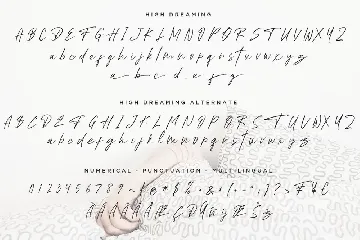 HIGH DREAMING
A B C D E F G H I J K L M N O P Q R S T U V W X Y Z
a b c d e f g h i j k l m n o p q r s t u v w x y z
a b c d e f g
HIGH DREAMING ALTERNATE
A B C D E F G H I J K L M N O P Q R S T U V W X Y Z
a b c d e f g h i j k l m n o p q r s t u v w x y z
NUMERICAL - PUNCTUATION - MULTILINGUAL
0 1 2 3 4 5 6 7 8 9